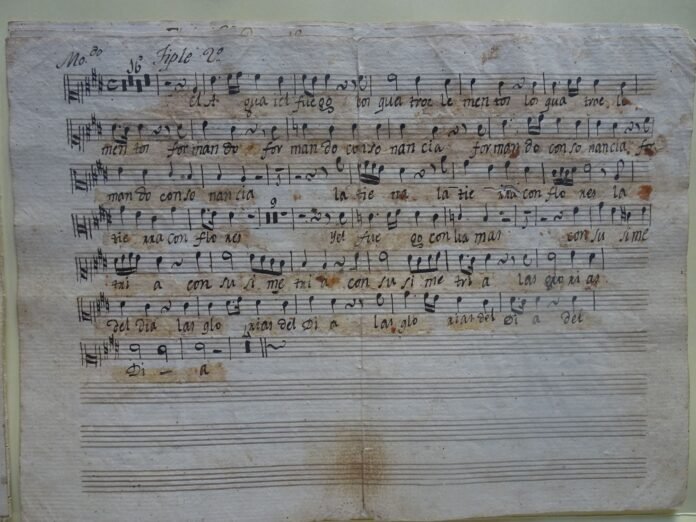 Mo.do Tiple 2o.
16
el A gua i el fuego los quatroe le men tos los qua troe le
men tos for man do for man do con so nan cia for man do con so nancia for
man do con so nan cia la tie rra la tie rra con flo res la
9
tie rra con flo res y el fue go con lla mas con su sime
tri a con su si me tri a con su si me tri a las glo rias
del dia las glo rias del Di a las glo rias del Di a del
Di - a